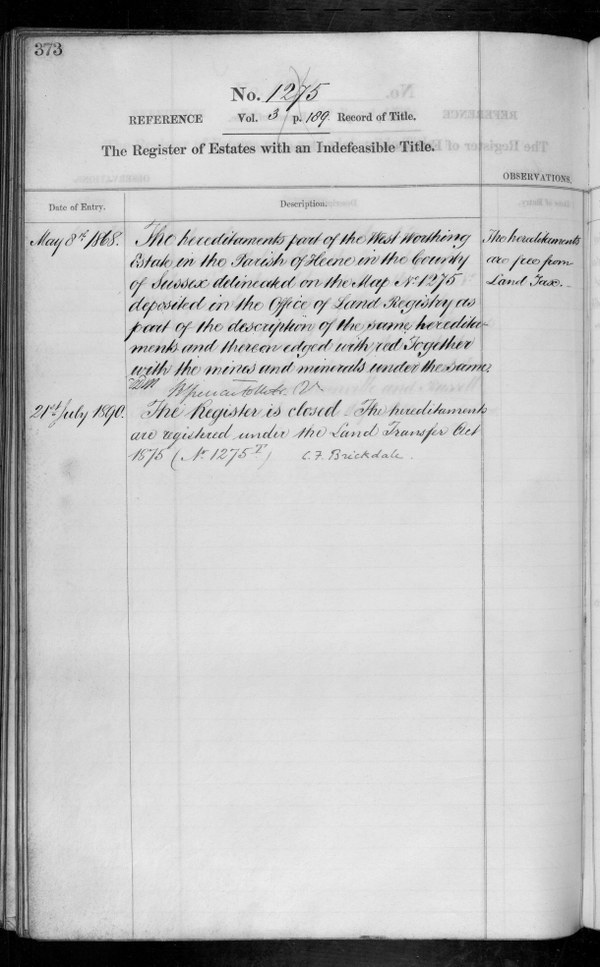 373
No. 1275
REFERENCE Vol. 3 p. 189. Record of Title.
The Register of Estates with an Indefeasible Title.
OBSERVATIONS.
Date of Entry.
Description.
May 8th 1868.
The hereditaments part of the West Worthing
Estate in the Parish of Heene in the County
of Sussex delineated on the Map No. 1275
deposited in the Office of Land Registry as
part of the description of the same heredita-
ments and thereon edged with red Together
with the mines and minerals under the same
The hereditaments
are free from
Land Tax.
21st July 1890.
The Register is closed The hereditaments
are registered under the Land Transfer Act
1875 (No. 1275 ) C. F. Brickdale.